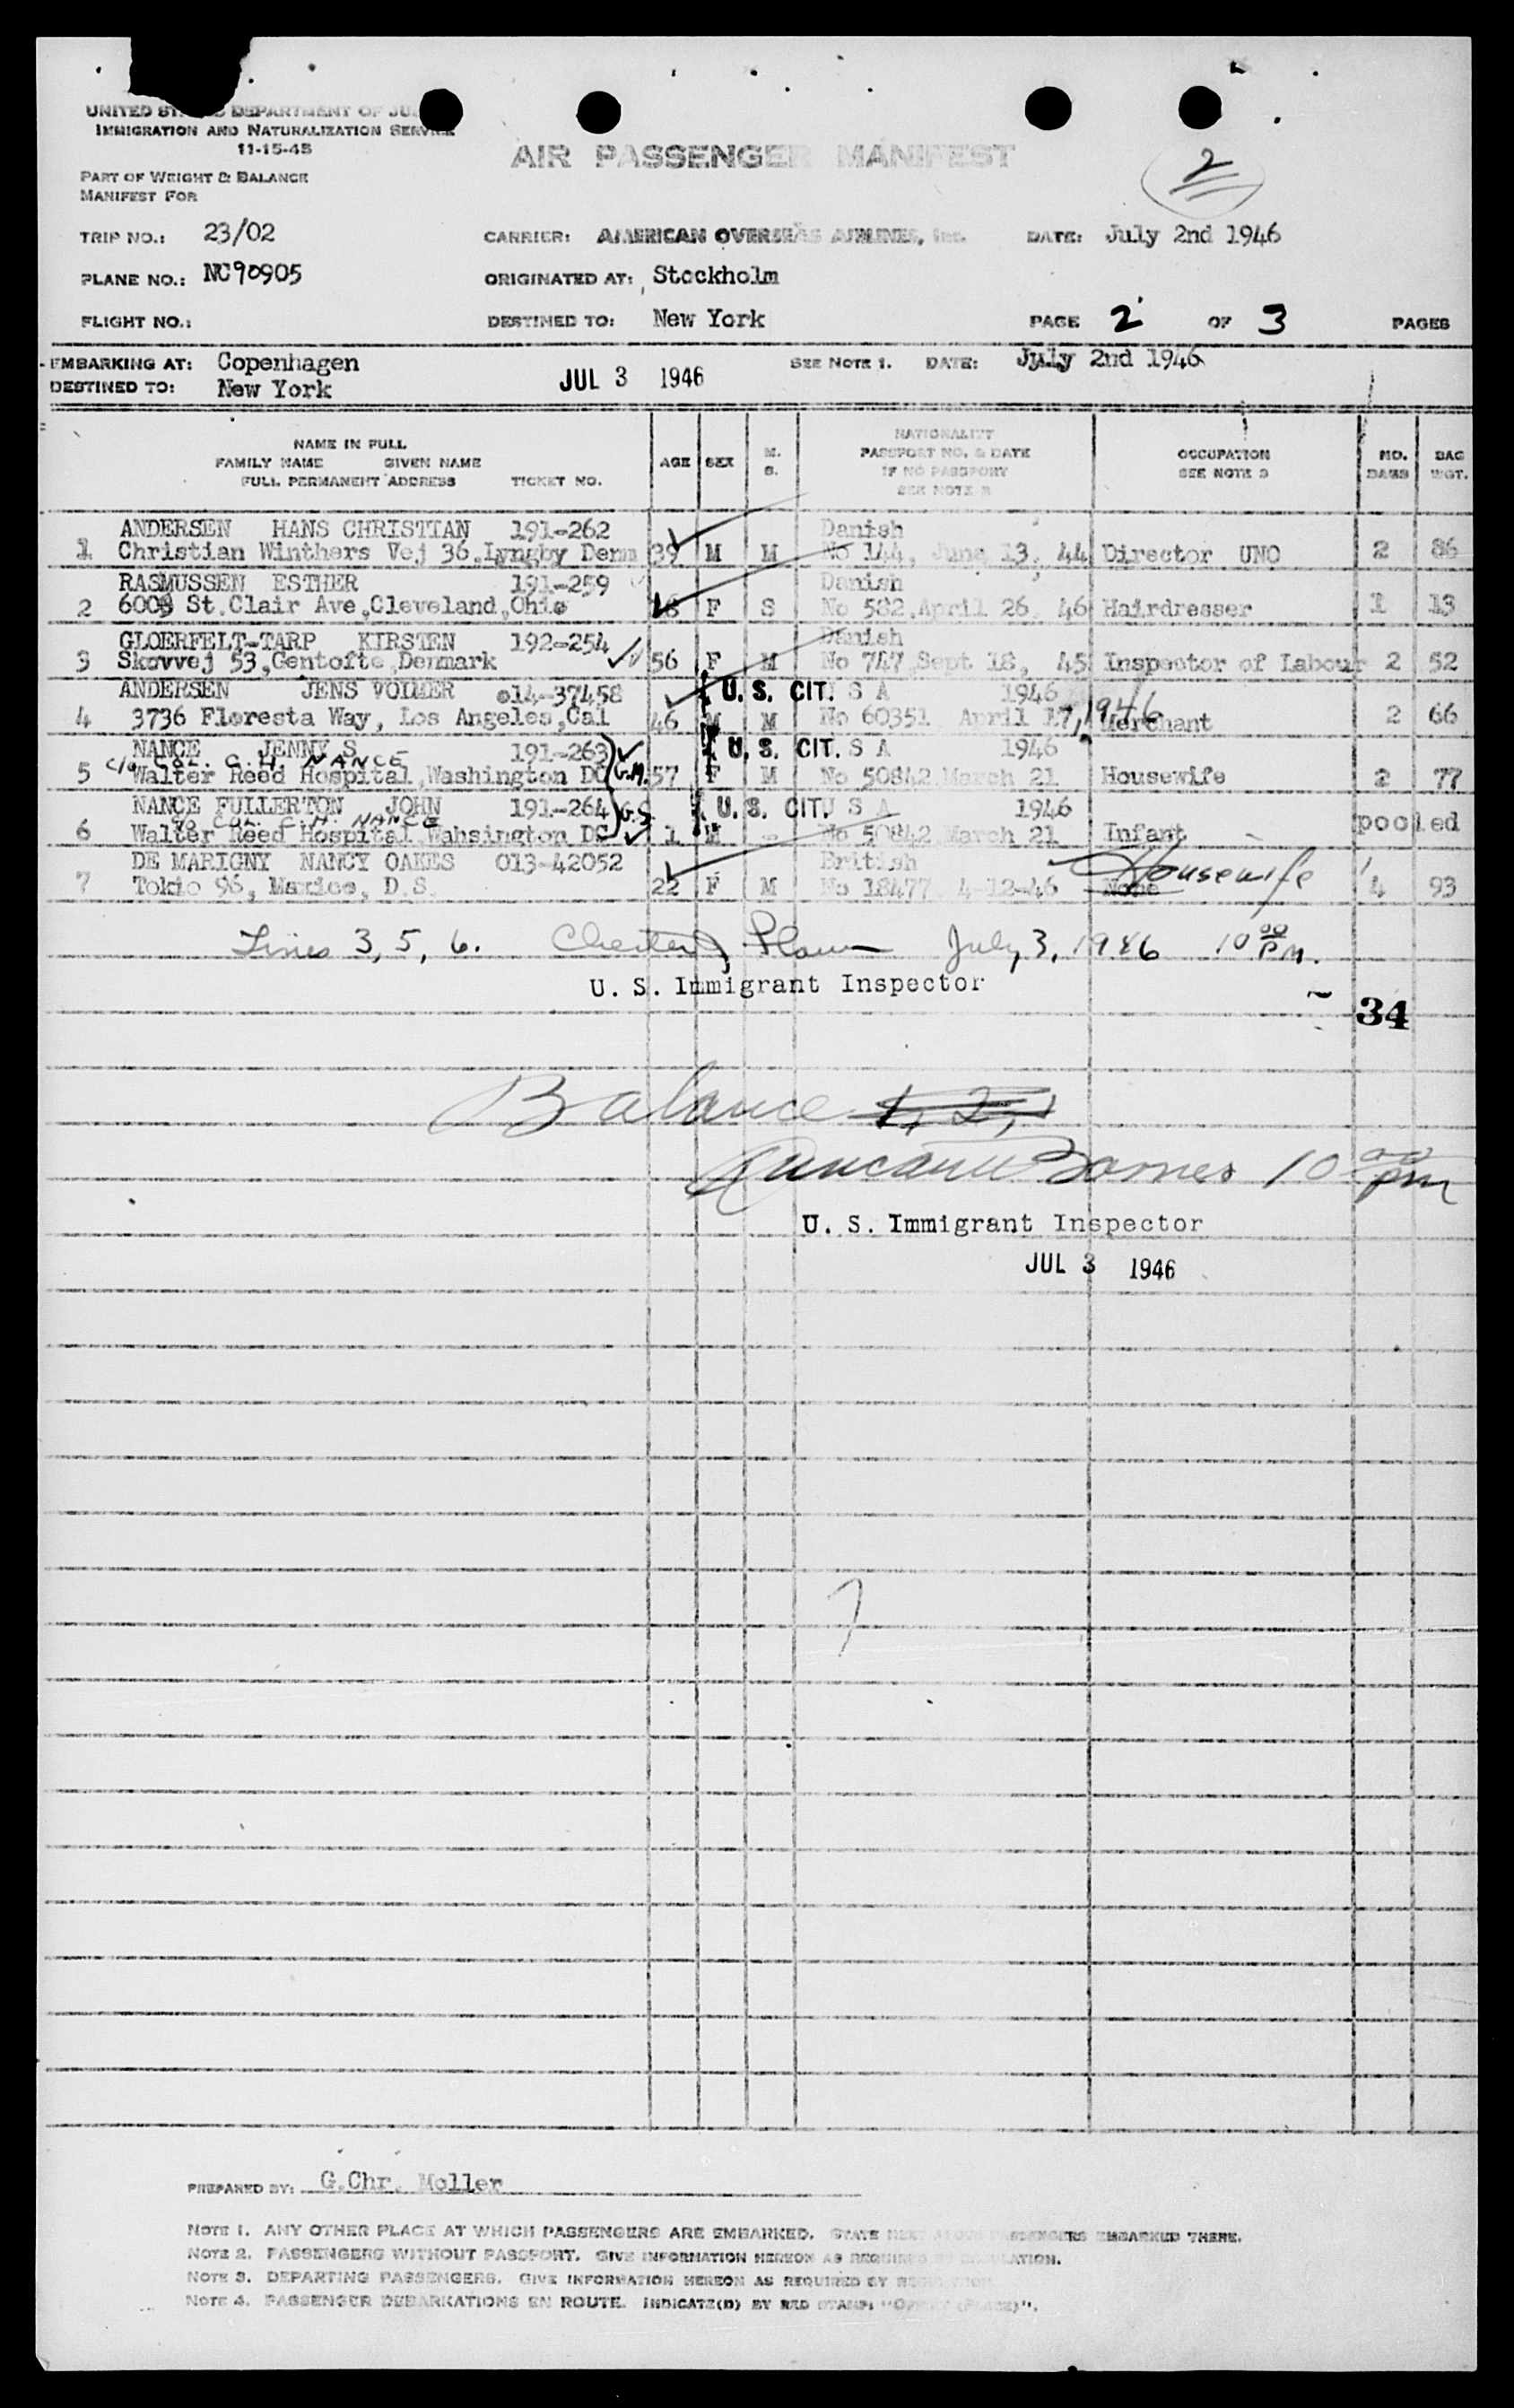 2
UNITED ST DEPARTMENT OF JU
IMMIGRATION AND NATURALIZATION SERVICE
11-15-45
AIR PASSENGER MANIFEST
PART OF WEIGHT & BALANCE
MANIFEST FOR
TRIP NO.: 23/02 CARRIER: AMERICAN OVERSEAS AIRLINES, Inc. DATE: July 2nd 1946
PLANE NO.: NC90905 ORIGINATED AT: Stockholm
FLIGHT NO.: DESTINED TO: New York PAGE 2 OF 3 PAGES
EMBARKING AT: Copenhagen SEE NOTE 1. DATE: July 2nd 1946
DESTINED TO: New York JUL 3 1946
NAME IN FULL
FAMILY NAME GIVEN NAME
FULL PERMANENT ADDRESS TICKET NO.
AGE SEX M. S.
NATIONALITY
PASSPORT NO. & DATE
IF NO PASSPORT
SEE NOTE 2
OCCUPATION
SEE NOTE 3
NO. BAGS
BAG WGT.
ANDERSEN HANS CHRISTIAN 191-262 Danish
1 Christian Winthers Vej 36,Lyngby Denm 39 M M No 144, June 13, 44 Director UNO 2 86
RASMUSSEN ESTHER 191-259 Danish
2 6009 St.Clair Ave,Cleveland,Ohio F S No 582,April 26, 46 Hairdresser 1 13
GLOERFELT-TARP KIRSTEN 192-254 Danish
3 Skovvej 53,Gentofte,Denmark 56 F M No 747,Sept 18, 45 Inspector of Labour 2 52
ANDERSEN JENS VOLMER 014-37458 U. S. CIT. S A 1946
4 3736 Floresta Way, Los Angeles,Cal 46 M M No 60351 April 17, 1946 Merchant 2 66
NANCE JENNY S 191-263 U. S. CIT. S A 1946
c/o COL. C. H. NANCE
5 Walter Reed Hospital,Washington DC G.M. 57 F M No 50842 March 21 Housewife 2 77
NANCE FULLERTON JOHN 191-264 G.S. U. S. CIT. U S A 1946
c/o COL. C. H. NANCE
6 Walter Reed Hospital Wahsington DC 1 M - No 50842 March 21 Infant - pooled
DE MARIGNY NANCY OAKES 013-42052 British Housewife
7 Tokio 96, Mexico, D.S. 22 F M No 18477 4-12-46 None 4 93
Lines 3, 5, 6. July 3, 1946 10 00 P M.
U. S. Immigrant Inspector
34
Balance 1, 2,
Barnes 10 00 pm
U. S. Immigrant Inspector
JUL 3 1946
7
PREPARED BY: G.Chr. Moller
NOTE 1. ANY OTHER PLACE AT WHICH PASSENGERS ARE EMBARKED. STATE NEXT ABOVE PASSENGERS EMBARKED THERE.
NOTE 2. PASSENGERS WITHOUT PASSPORT. GIVE INFORMATION HEREON AS REQUIRED BY REGULATION.
NOTE 3. DEPARTING PASSENGERS. GIVE INFORMATION HEREON AS REQUIRED BY REGULATION.
NOTE 4. PASSENGER DEBARKATIONS EN ROUTE. INDICATE(D) BY RED STAMP: "OFF AT (PLACE)".